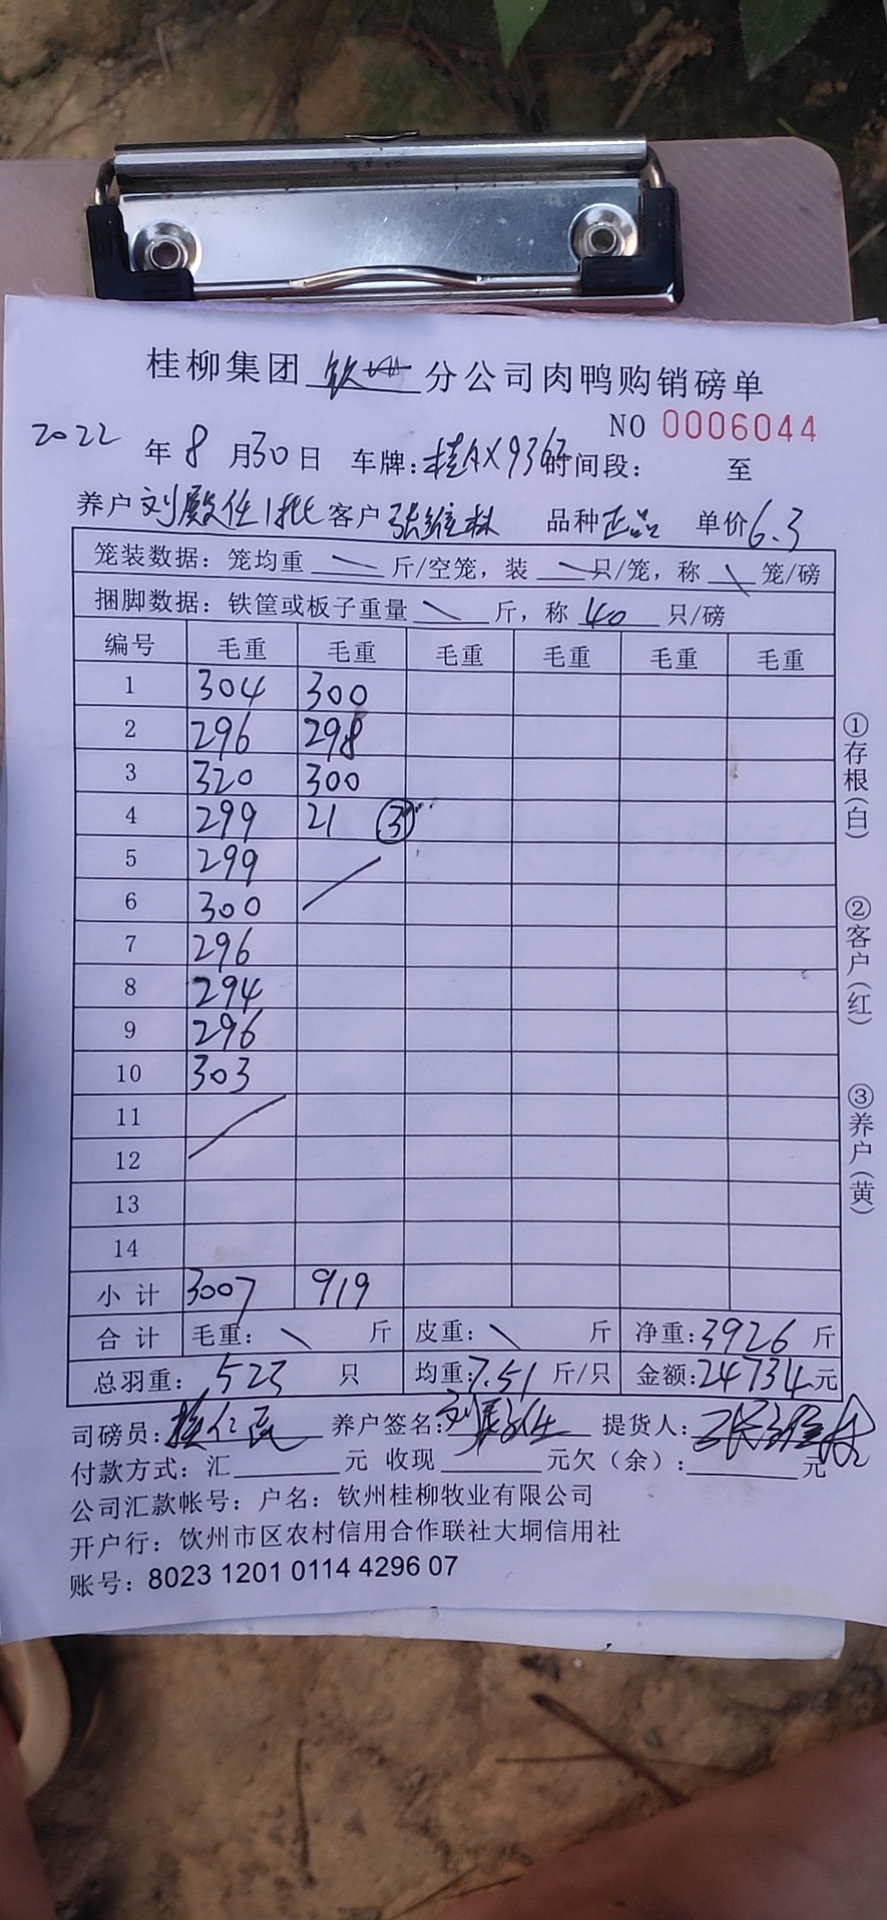 桂柳集团 钦州 分公司肉鸭购销磅单
NO 0006044
2022 年 8 月 30 日 车牌: 时间段: 至
养户 刘殿任1批 客户 张维林 品种 正品 单价 6.3
笼装数据: 笼均重 斤/空笼, 装 只/笼, 称 笼/磅
捆脚数据: 铁筐或板子重量 斤, 称 40 只/磅
编号 毛重 毛重 毛重 毛重 毛重 毛重
1 304 300
2 296 298
3 320 300
4 299 21 ③
5 299
6 300
7 296
8 294
9 296
10 303
11
12
13
14
小计 3007 919
合计 毛重: 斤 皮重: 斤 净重: 3926 斤
总羽重: 523 只 均重: 7.51 斤/只 金额: 24734 元
司磅员: 养户签名: 提货人:
付款方式: 汇 元 收现 元欠(余): 元
公司汇款帐号: 户名: 钦州桂柳牧业有限公司
开户行: 钦州市区农村信用合作联社大垌信用社
账号: 8023 1201 0114 4296 07
①存根(白)
②客户(红)
③养户(黄)